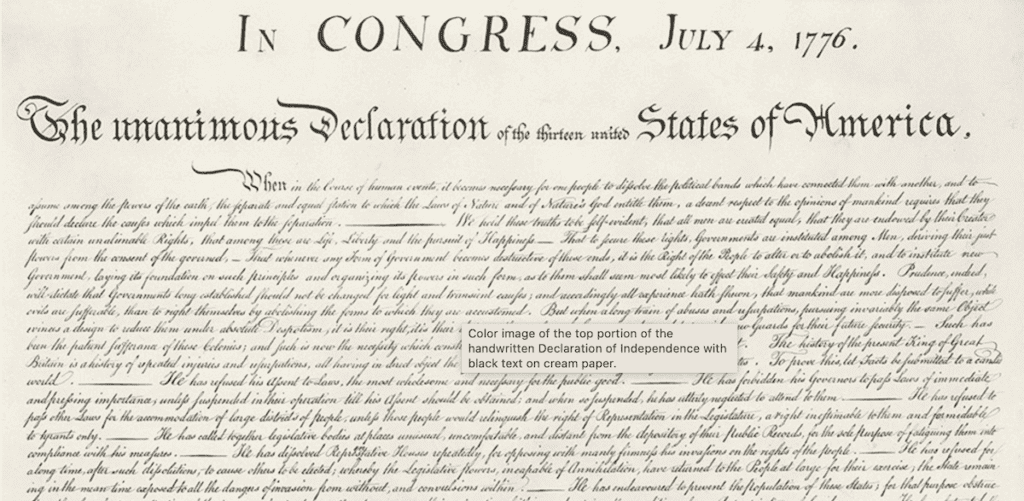 IN CONGRESS, JULY 4, 1776.
The unanimous Declaration of the thirteen united States of America,
When in the Course of human events, it becomes necessary for one people to dissolve the political bands which have connected them with another, and to
assume among the powers of the earth, the separate and equal station to which the Laws of Nature and of Nature's God entitle them, a decent respect to the opinions of mankind requires that they
should declare the causes which impel them to the separation. ——— We hold these truths to be self-evident, that all men are created equal, that they are endowed by their Creator
with certain unalienable Rights, that among these are Life, Liberty and the pursuit of Happiness. — That to secure these rights, Governments are instituted among Men, deriving their just
powers from the consent of the governed, — That whenever any Form of Government becomes destructive of these ends, it is the Right of the People to alter or to abolish it, and to institute new
Government, laying its foundation on such principles and organizing its powers in such form, as to them shall seem most likely to effect their Safety and Happiness. Prudence, indeed,
will dictate that Governments long established should not be changed for light and transient causes; and accordingly all experience hath shewn, that mankind are more disposed to suffer, while
evils are sufferable, than to right themselves by abolishing the forms to which they are accustomed. But when a long train of abuses and usurpations, pursuing invariably the same Object
evinces a design to reduce them under absolute Despotism, it is their right, it is their Guards for their future security. — Such has
been the patient sufferance of these Colonies; and such is now the necessity which The history of the present King of Great
Britain is a history of repeated injuries and usurpations, all having in direct object the To prove this, let Facts be submitted to a candid
Color image of the top portion of the
handwritten Declaration of Independence with
black text on cream paper.
world. ——— He has refused his Assent to Laws, the most wholesome and necessary for the public good. ——— He has forbidden his Governors to pass Laws of immediate
and pressing importance, unless suspended in their operation till his Assent should be obtained; and when so suspended, he has utterly neglected to attend to them. ——— He has refused to
pass other Laws for the accommodation of large districts of people, unless those people would relinquish the right of Representation in the Legislature, a right inestimable to them and formidable
to tyrants only. ——— He has called together legislative bodies at places unusual, uncomfortable, and distant from the depository of their Public Records, for the sole purpose of fatiguing them into
compliance with his measures. ——— He has dissolved Representative Houses repeatedly, for opposing with manly firmness his invasions on the rights of the people. ——— He has refused for
a long time, after such dissolutions, to cause others to be elected; whereby the Legislative powers, incapable of Annihilation, have returned to the People at large for their exercise; the State remain
ing in the mean time exposed to all the dangers of invasion from without, and convulsions within. ——— He has endeavoured to prevent the population of these States; for that purpose obstruc